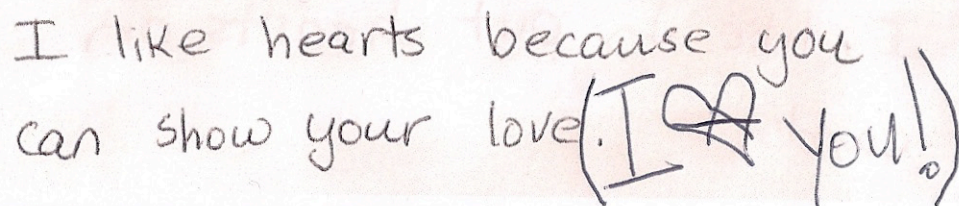 I like hearts because you
can show your love. (I ♥ you!)